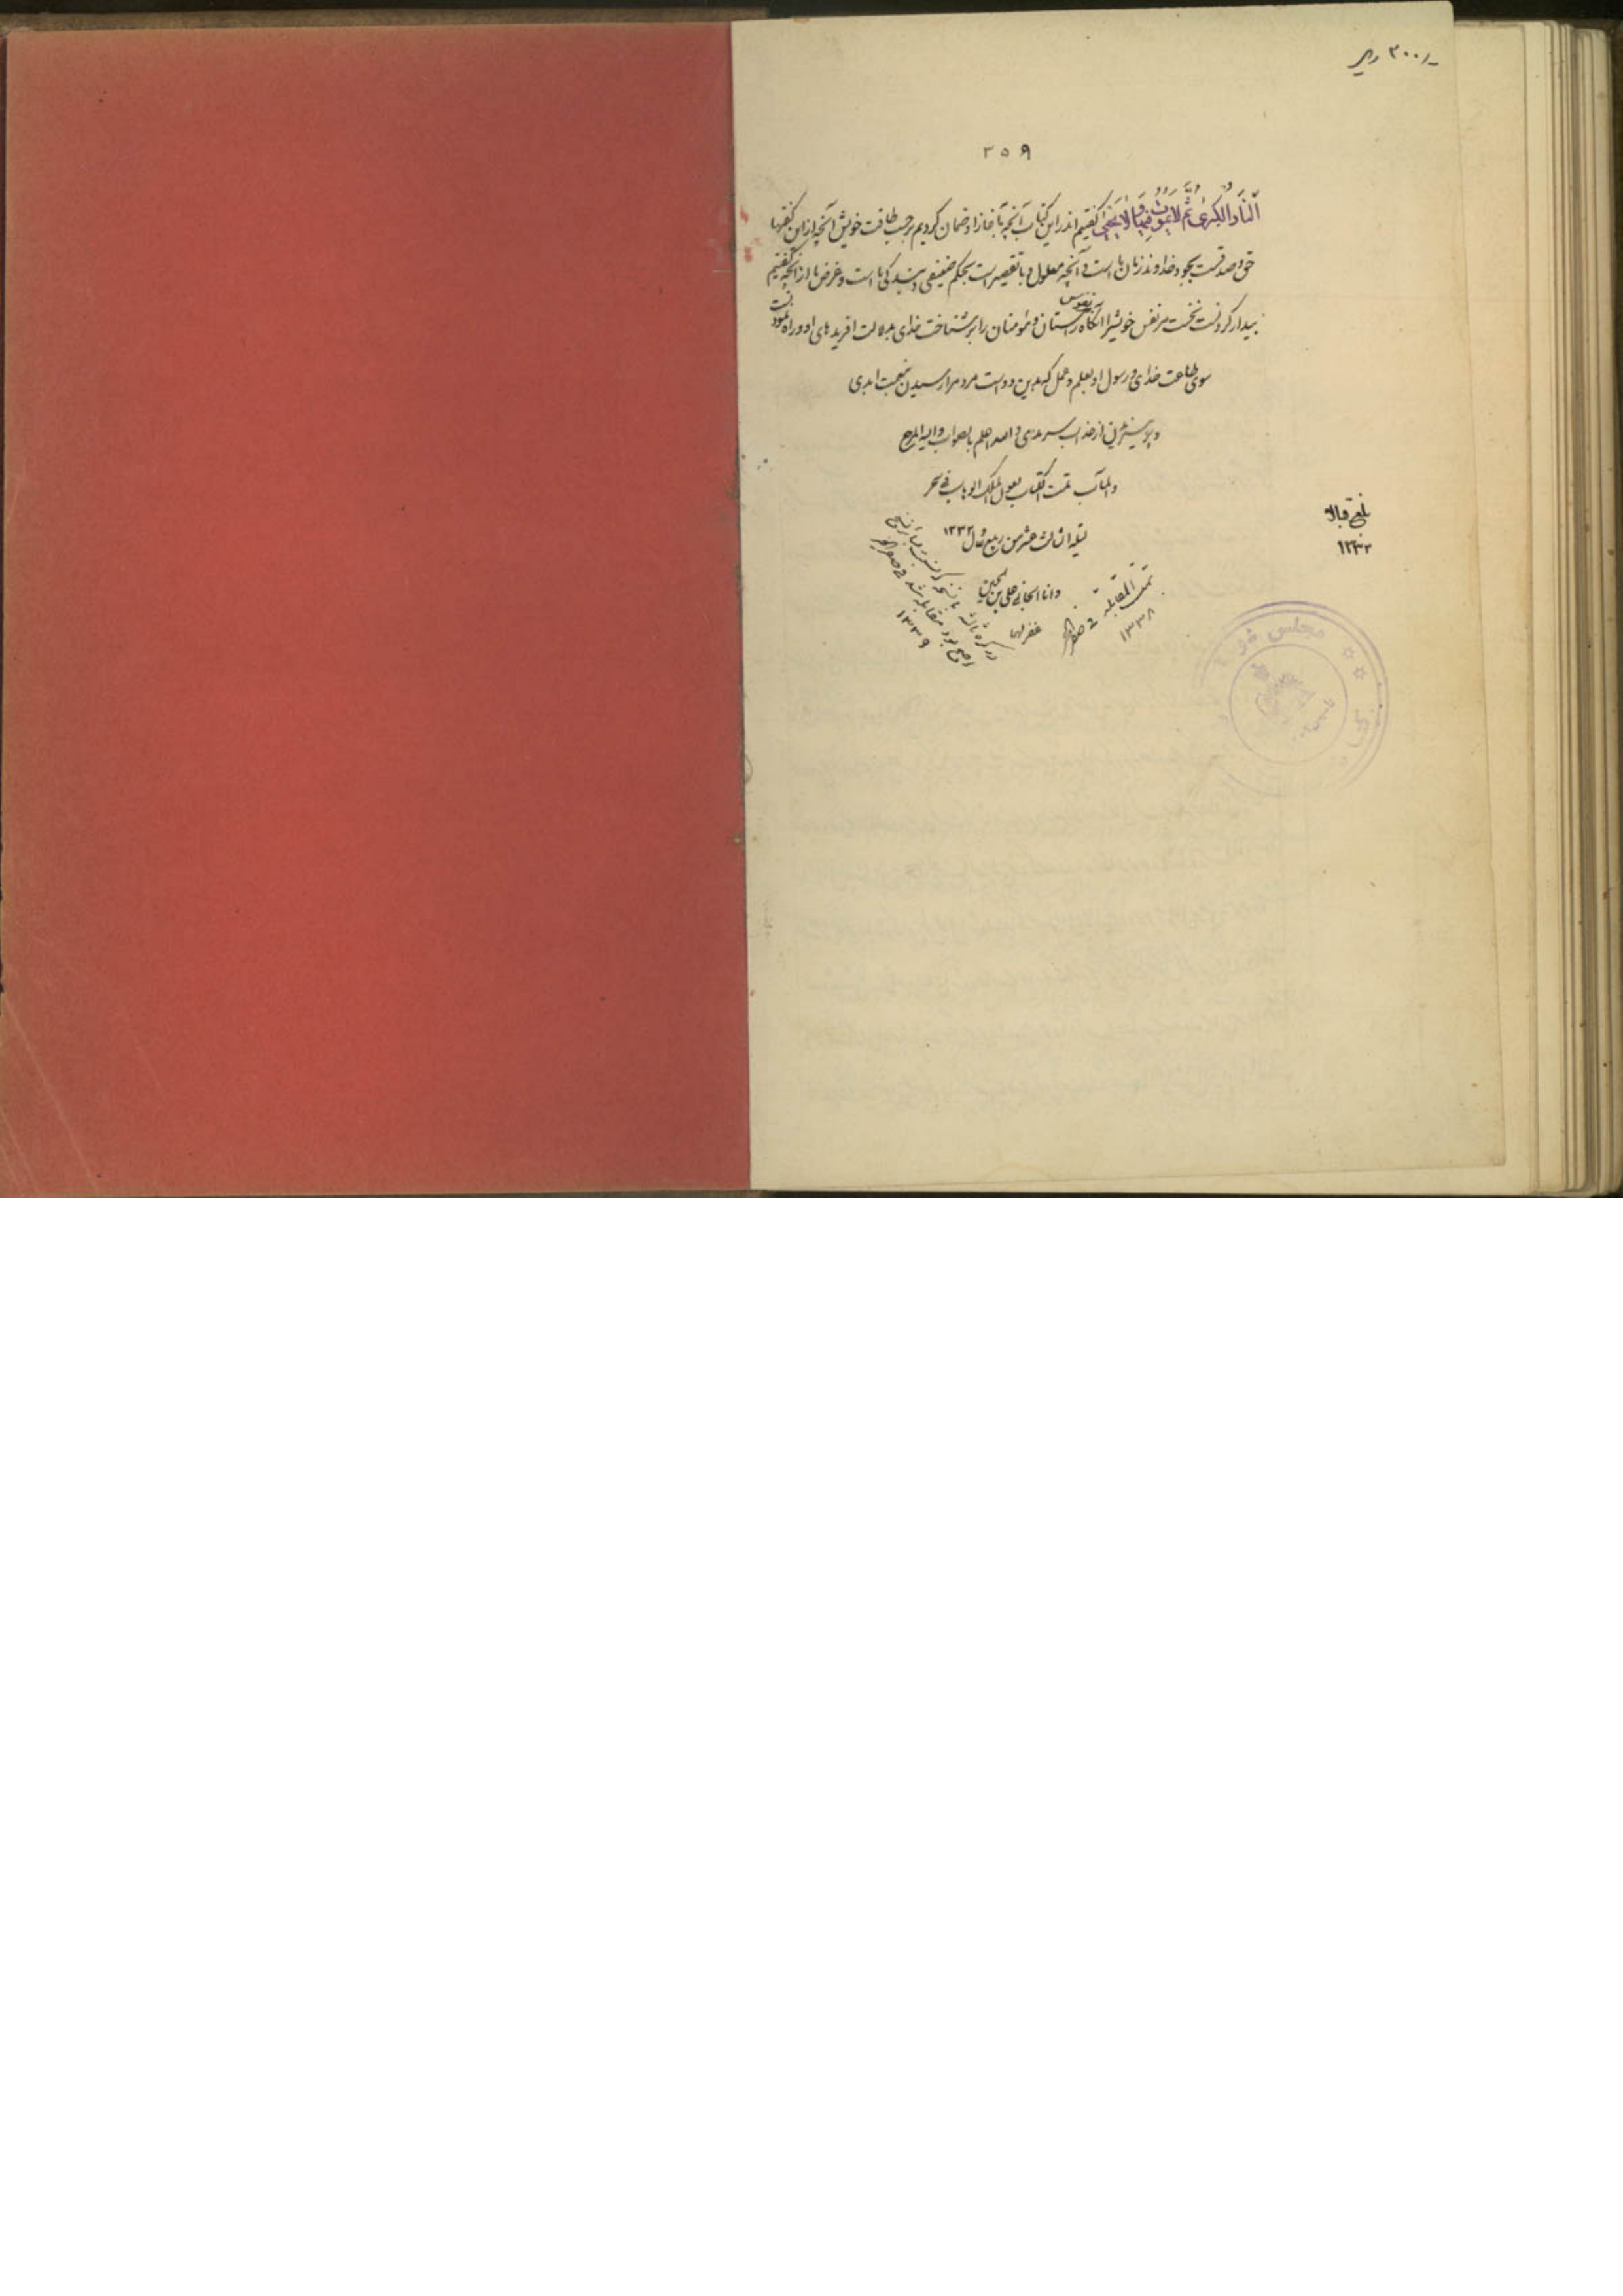 ۳۰۰/- ریال
۳۵۹
النّار الکبری ثمّ لا یموت فیها و لا یحیی گفتیم اندر این کتاب آنچه بآغاز او ضمان کردیم بر حسب طاقت خویش آنچه از این گفتها
حق و صدقست بجود خداوند زمان ما است و آنچه معلول و با تقصیر است بحکم ضعیفی و بندگی ما است و غرض ما از آنچه گفتیم
بیدار کردنست نخست مر نفس خویش را آنگاه نفوس راستان و مؤمنان را بر شناخت خدای بدلالت آفریدهای او و راه نمودنست
سوی طاعت خدای و رسول او بعلم و عمل که بدین دو است مردم را رسیدن بنعمت ابدی
و پرهیز از عذاب سرمدی و الله اعلم بالصواب و الیه المرجع
و المآب تمت الکتاب بعون الملک الوهاب فی سحر
لیلة الثالث عشر من ربیع الاول ۱۳۳۲
و انا الجانی علی بن
غفر لهما
تمت المقابله فی صفر
۱۳۳۸
مقابله شد فی صفر
۱۳۳۹
بلغ قبالا
۱۳۳۲
مجلس